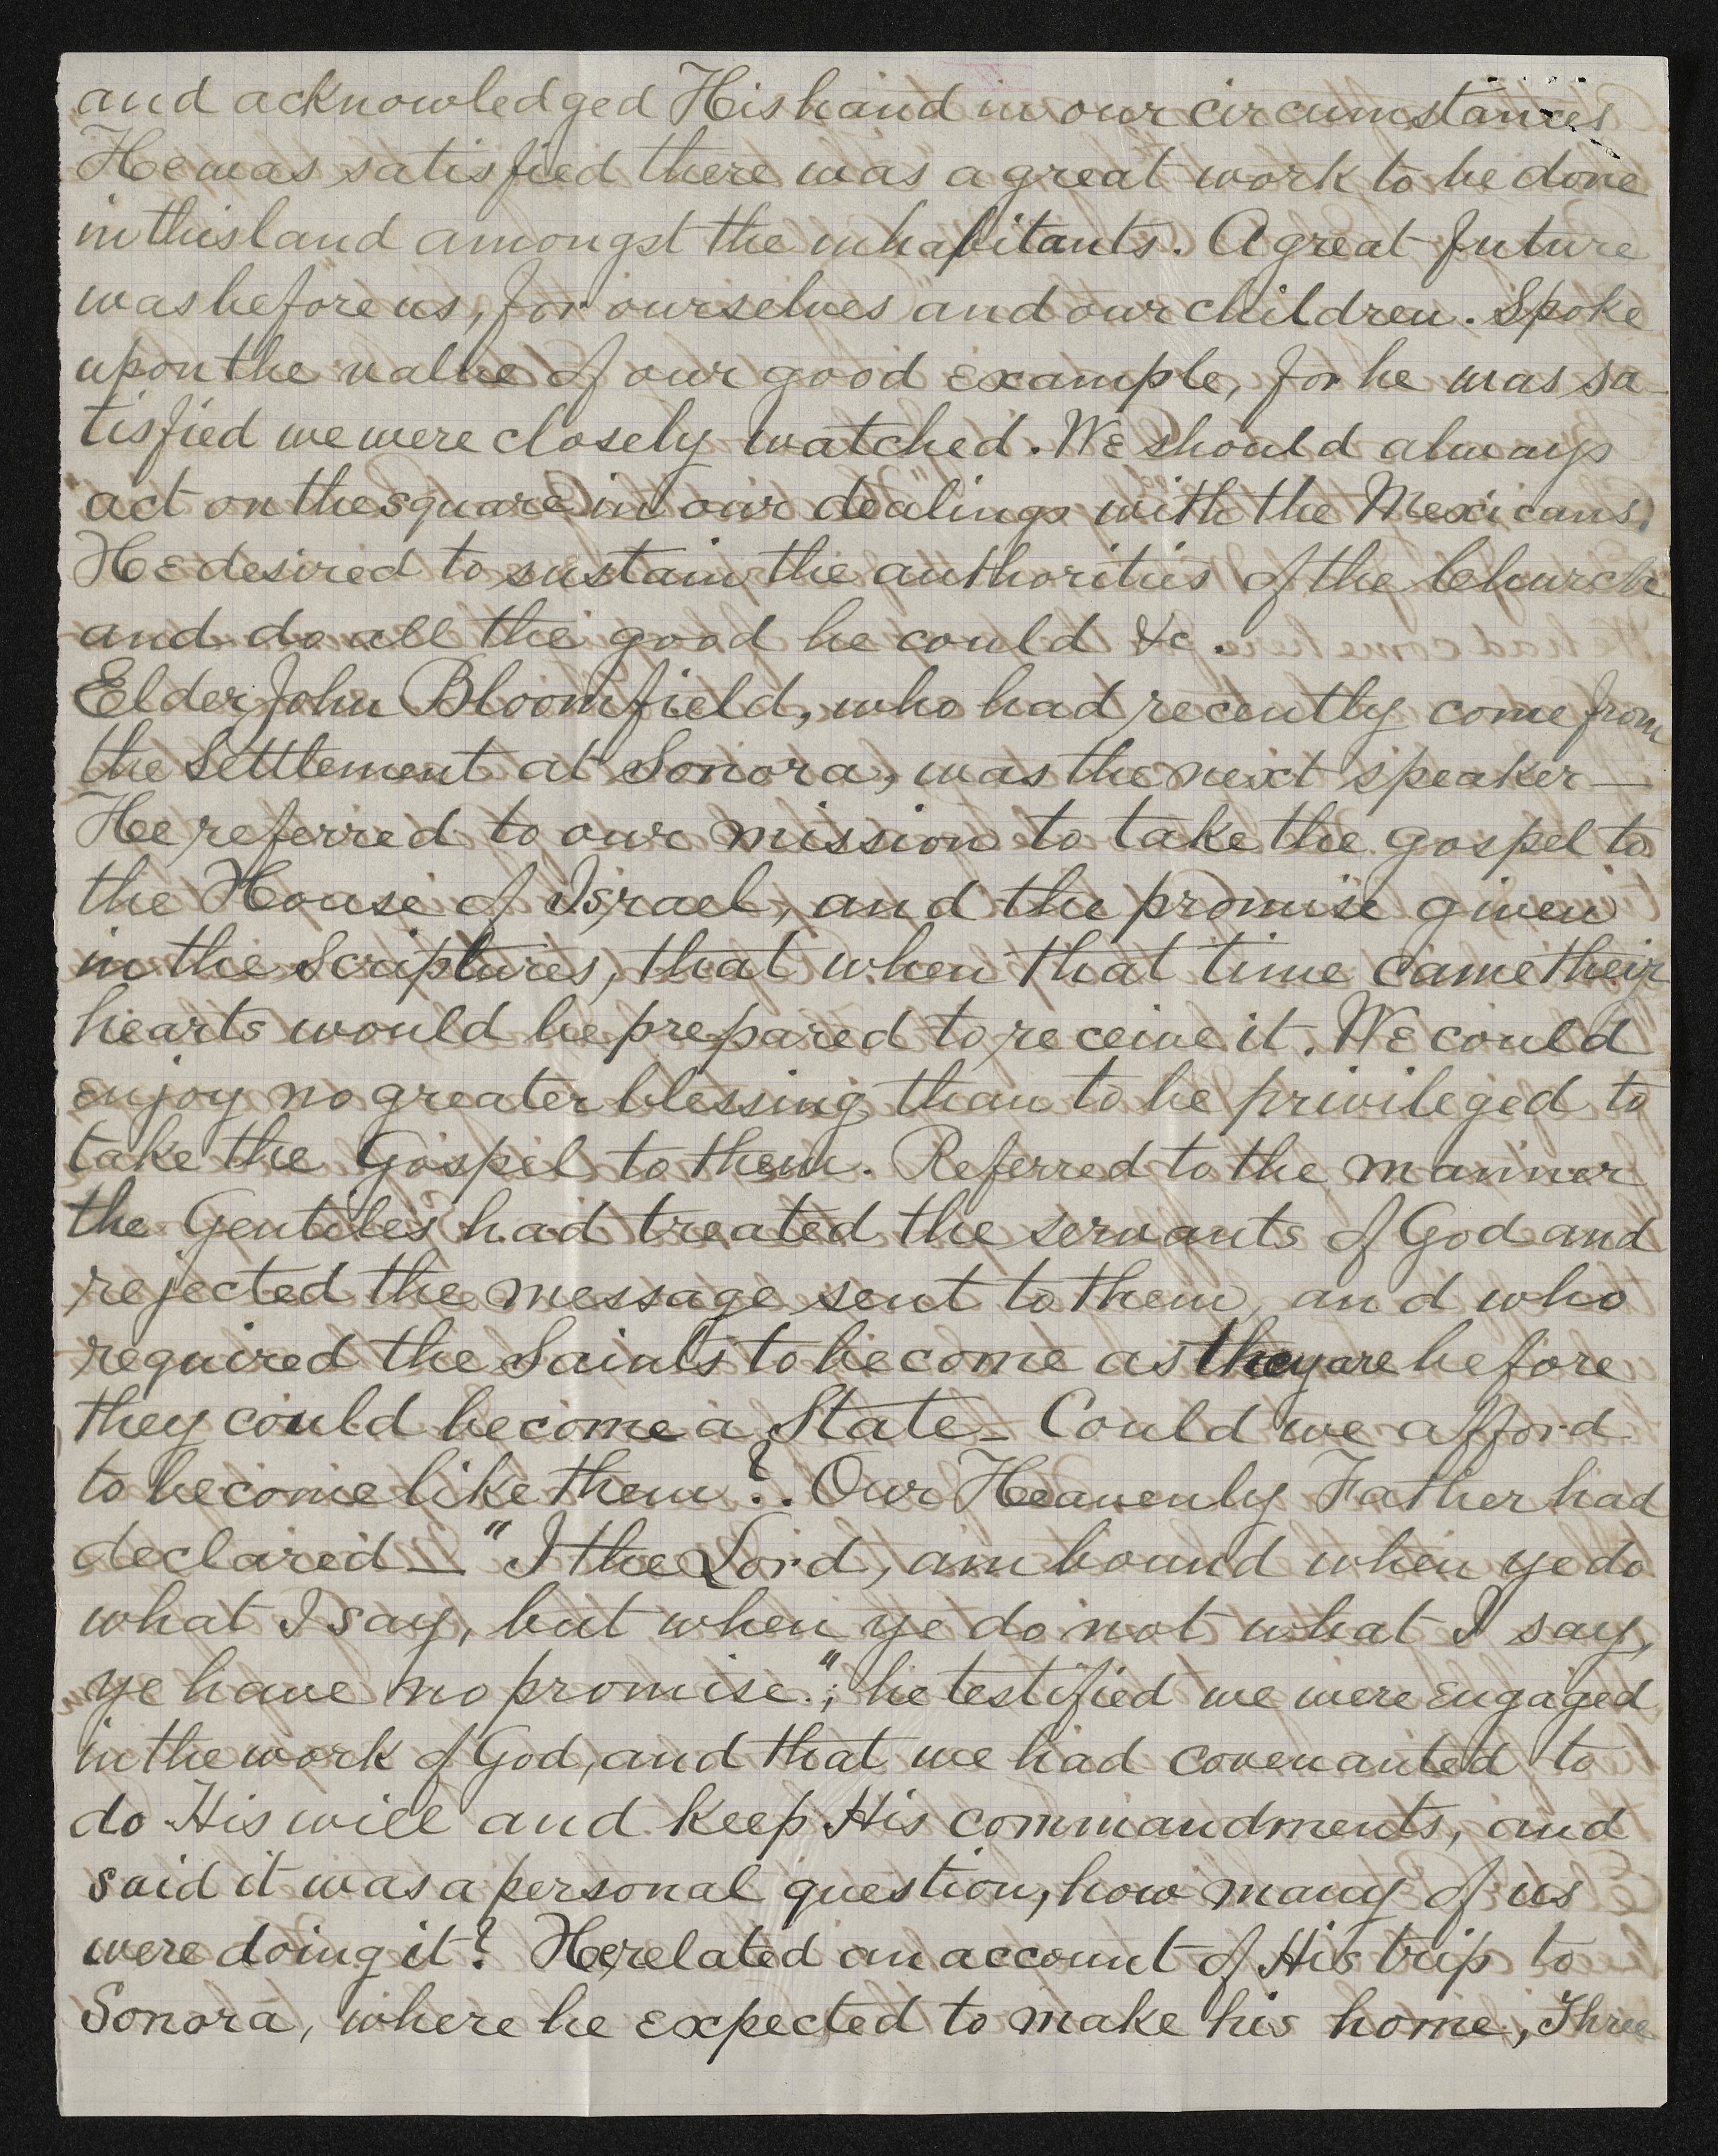 and acknowledged His hand in our circumstances
He was satisfied there was a great work to be done
in this land amongst the inhabitants. A great future
was before us, for ourselves and our children. Spoke
upon the value of our good example, for he was sa-
tisfied we were closely watched. We should always
act on the square in our dealings with the Mexicans.
He desired to sustain the authorities of the Church
and do all the good he could &c.
Elder John Bloomfield, who had recently come from
the Settlement at Sonora, was the next speaker—
He referred to our mission to take the gospel to
the House of Israel, and the promise given
in the Scriptures, that when that time came their
hearts would be prepared to receive it. We could
enjoy no greater blessing than to be privileged to
take the Gospel to them. Referred to the manner
the Gentiles had treated the servants of God and
rejected the message sent to them, and who
required the Saints to become as they are before
they could become a State— Could we afford
to become like them?. Our Heavenly Father had
declared— "I the Lord, am bound when ye do
what I say, but when ye do not what I say,
ye have no promise."; he testified we were engaged
in the work of God, and that we had covenanted to
do His will and keep His commandments, and
said it was a personal question, how many of us
were doing it? He related an account of His trip to
Sonora, where he expected to make his home, Three